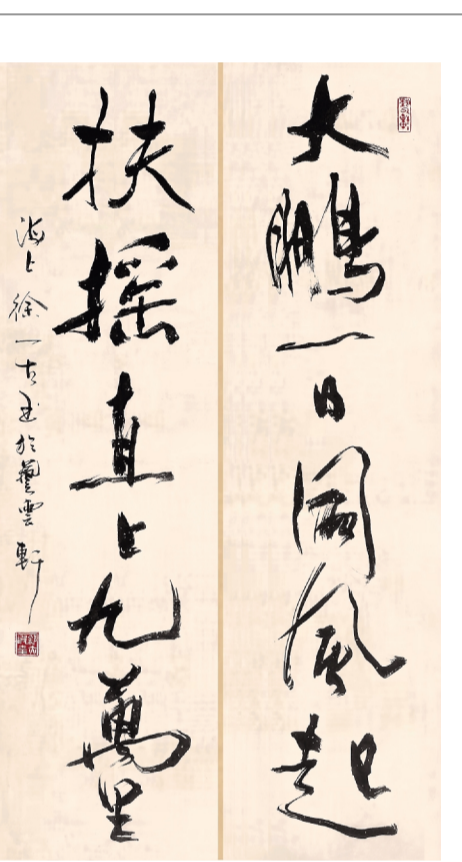 大鵬一日同風起
扶搖直上九萬里
海上徐一古書於藝雲軒